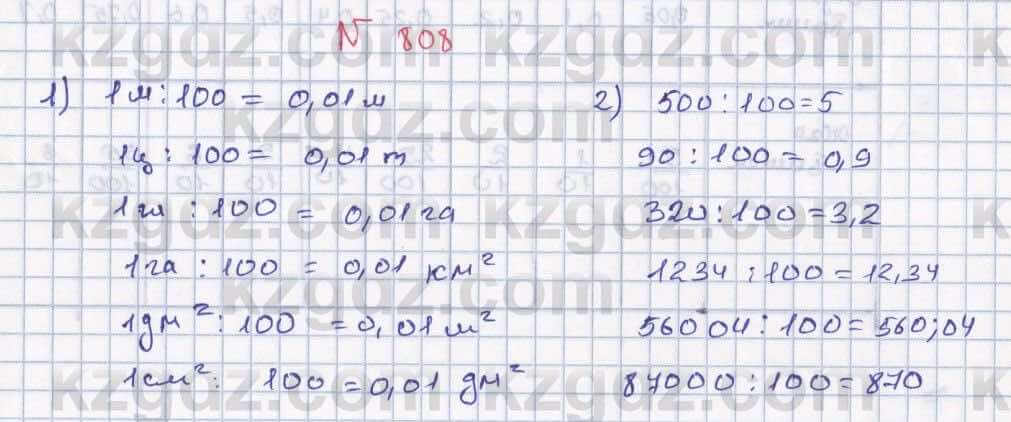 № 808
1) 1м : 100 = 0,01м
1ц : 100 = 0,01 т
1м : 100 = 0,01 га
1га : 100 = 0,01 км²
1дм² : 100 = 0,01 м²
1см² : 100 = 0,01 дм²
2) 500 : 100 = 5
90 : 100 = 0,9
320 : 100 = 3,2
1234 : 100 = 12,34
56004 : 100 = 560,04
87000 : 100 = 870
kzgdz.com